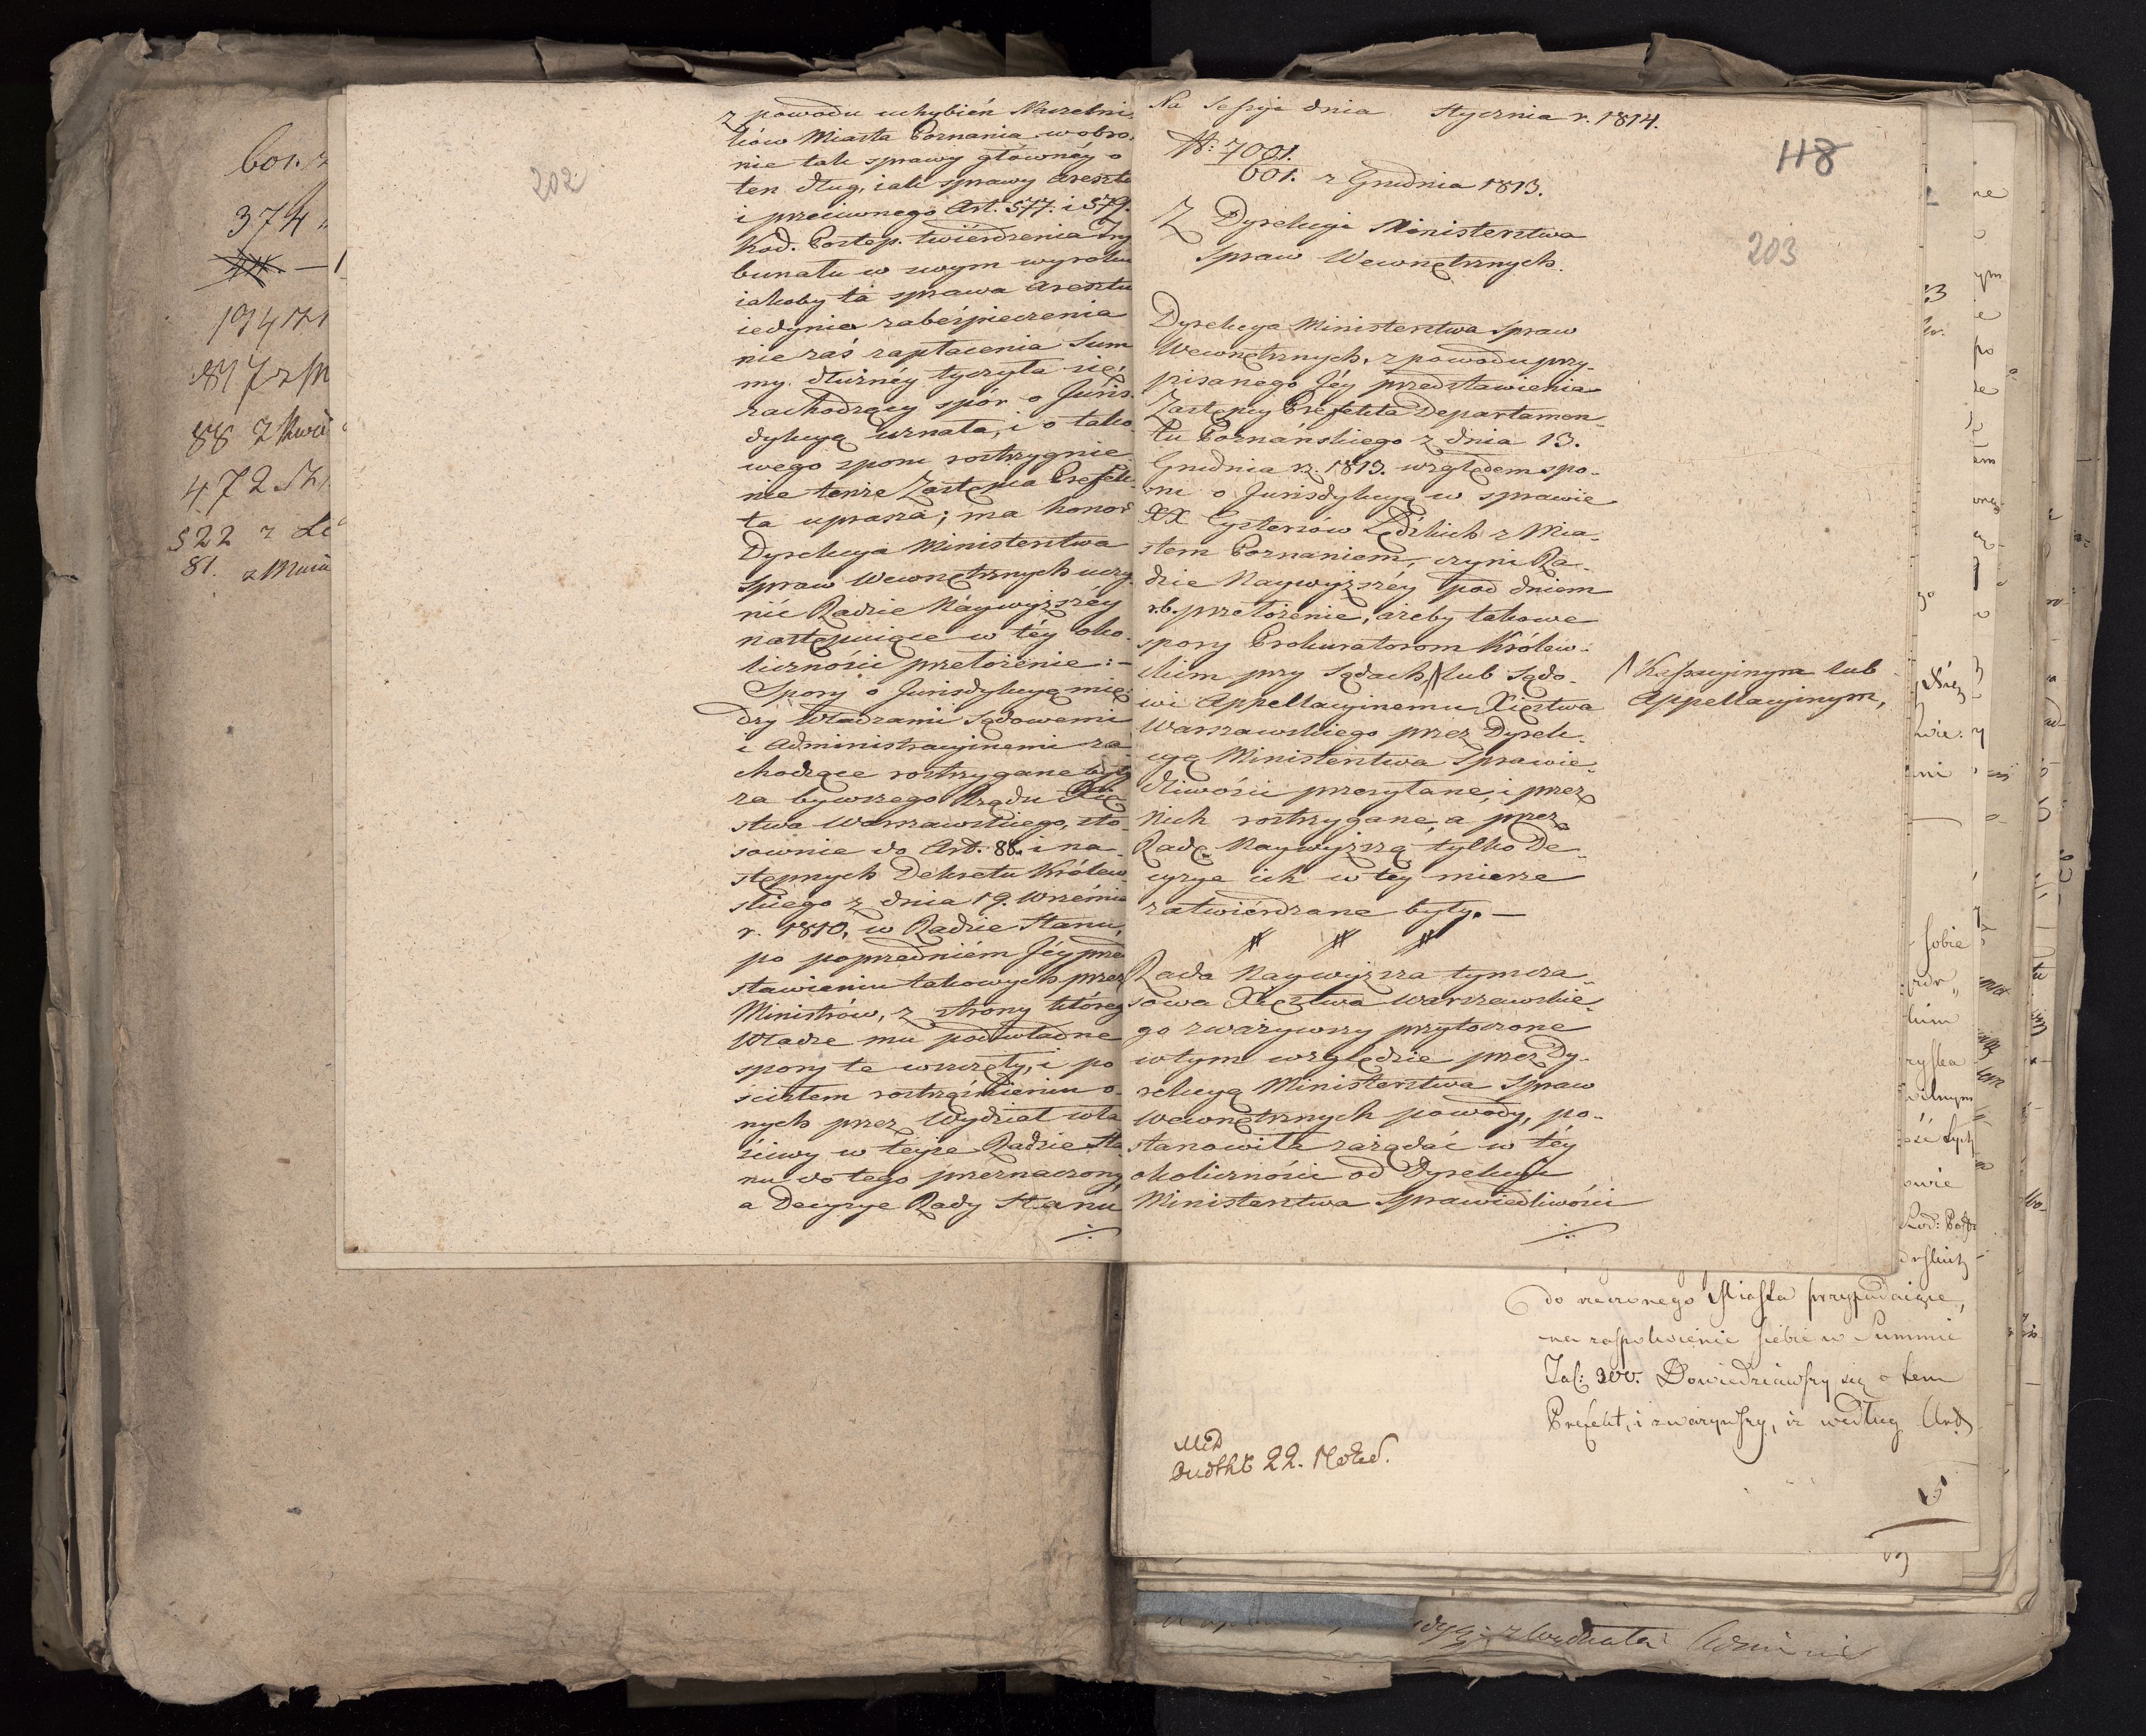 601. z
374
194
817 z M
88 z Kwie
472 St
522 z Li
81. z Maia
202
z powodu uchybień Naczelni¬
ków Miasta Poznania w obro¬
nie tak sprawy głównéy o
ten dług, iak sprawy aresztu
i przeciwnego Art. 577. i 579.
Kod. Postęp. twiérdzenia Try
bunału w swym wyroku
iakoby ta sprawa aresztu
iedynie zabeśpieczenia
nie zaś zapłacenia Sum
my dłużnéy tyczyła się,
zachodzący spór o Juris
dykcyą uznała, i o tako
wego sporu roztrzygnie
nie tenże Zastępca Prefek
ta uprasza; ma honor
Dyrekcya Ministerstwa
Spraw Wewnętrznych uczy
nić Radzie Naywyższéy
następuiące w téy oko
liczności przełożenie: —
Spory o Jurisdykcyą mię
dzy Władzami Sądowemi
i Administracyinemi za
chodzące roztrzygane były
za bywszego Rządu Xię
stwa Warszawskiego, sto
sownie do Art. 88. i na
stępnych Dekretu Królew
skiego z dnia 19. Września
r. 1810, w Radzie Stanu,
po poprzedniém Jéy przed
stawieniu takowych przez
Ministrów, z strony któreg
Władze mu podwładne
spory te wszczęły, i po
ścisłem roztrząśnieniu o¬
nych przez Wydział wła
ściwy w teyże Radzie Sta
nu do tego przeznaczony,
a Decyzye Rady Stanu
Na Sessyi dnia Stycznia r. 1814.
118
№: 7001.
601. z Grudnia 1813.
203
Z Dyrekcyi Ministerstwa
Spraw Wewnętrznych.
Dyrekcya Ministerstwa Spraw
Wewnętrznych, z powodu przy¬
pisanego Jéy przedstawienia
Zastępcy Prefekta Departamen¬
tu Poznańskiego z dnia 13.
Grudnia r. 1813. względem spo¬
ru o Jurisdykcyą w sprawie
XX Cystersów Lędzkich z Mia¬
stem Poznaniem, czyni Ra¬
dzie Naywyższéy pod dniem
r.b. przełożenie, ażeby takowe
spory Prokuratorom Królew¬
skim przy Sądach /\ lub Sądo¬
/\ Kassacyinym lub
Appellacyinym,
wi Appellacyinemu Xięstwa
Warszawskiego przez Dyrek¬
cyą Ministerstwa Sprawie¬
dliwości przesyłane, i przez
Nich roztrzygane, a przez
Radę Naywyższą tylko De¬
cyzye ich w téy mierze
zatwiérdzane były. —
# # #
Rada Naywyższa tymcza¬
sowa Xięztwa Warszawskie¬
go zważywszy przytoczone
w tym względzie przez Dy¬
rekcyą Ministerstwa Spraw
Wewnętrznych powody, po¬
stanowiła zażądać w téy
okoliczności od Dyrekcyi
Ministerstwa Sprawiedliwości
do rzeczonego Miasta przypadaiące,
na zaspokoienie siebie w Summie
Tal: 300. Dowiedziawszy się o tem
Prefekt, i zważywszy, iż według Art.